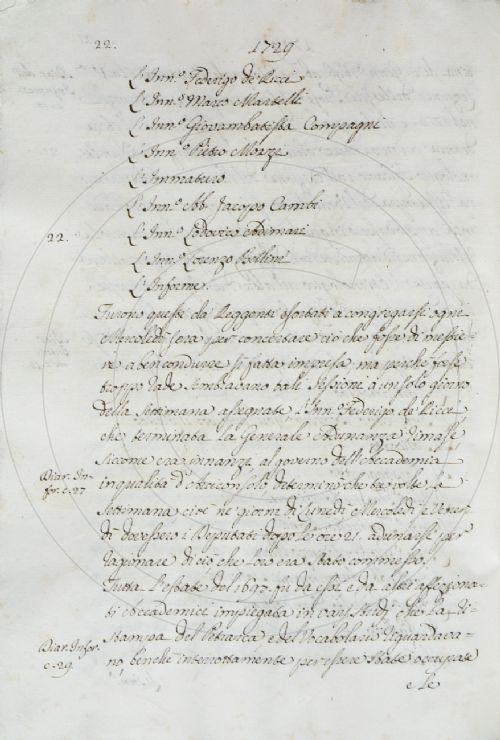 22.
1729
L'Inn.º Federigo de Ricci
L'Inn.º Marco Martelli
L'Inn.º Giovambatista Compagni
L'Inn.º Pietro
L'Immaturo
L'Inn.º Abb. Jacopo Cambi
22.
L'Inn.º Lodovico Adimari
L'Inn.º Lorenzo Bellini
L'Informe
Furono questi da Reggenti esortati a congregarsi ogni
Mercoledì sera per concertare ciò che fosse di mestie-
re a ben condurre sì fatta impresa ma perchè forse
troppo rade sembravano tali Sessioni a un solo giorno
della settimana assegnate L'Inn. Federigo de Ricci
che, terminata la Generale Adunanza rimase
siccome era innanzi al governo dell'Accademia
Diar. In-
for. c. 27
in qualità d'Arciconsolo determinò che tre volte a
settimana cioè ne giorni di Lunedì Mercoledì e Vener-
dì dovessero i Deputati dopo le ore 21. adunarsi per
ragionare di ciò che loro era stato commesso
Tutta l'estate del 1697. fu da essi e da altri affeziona-
ti Accademici impiegata in varj Studj, che la Ri-
Diar. Infor.
c. 29
stampa del Petrarca e del Vocabolario riguardava-
no, benchè interrottamente per essere state occupate
e le